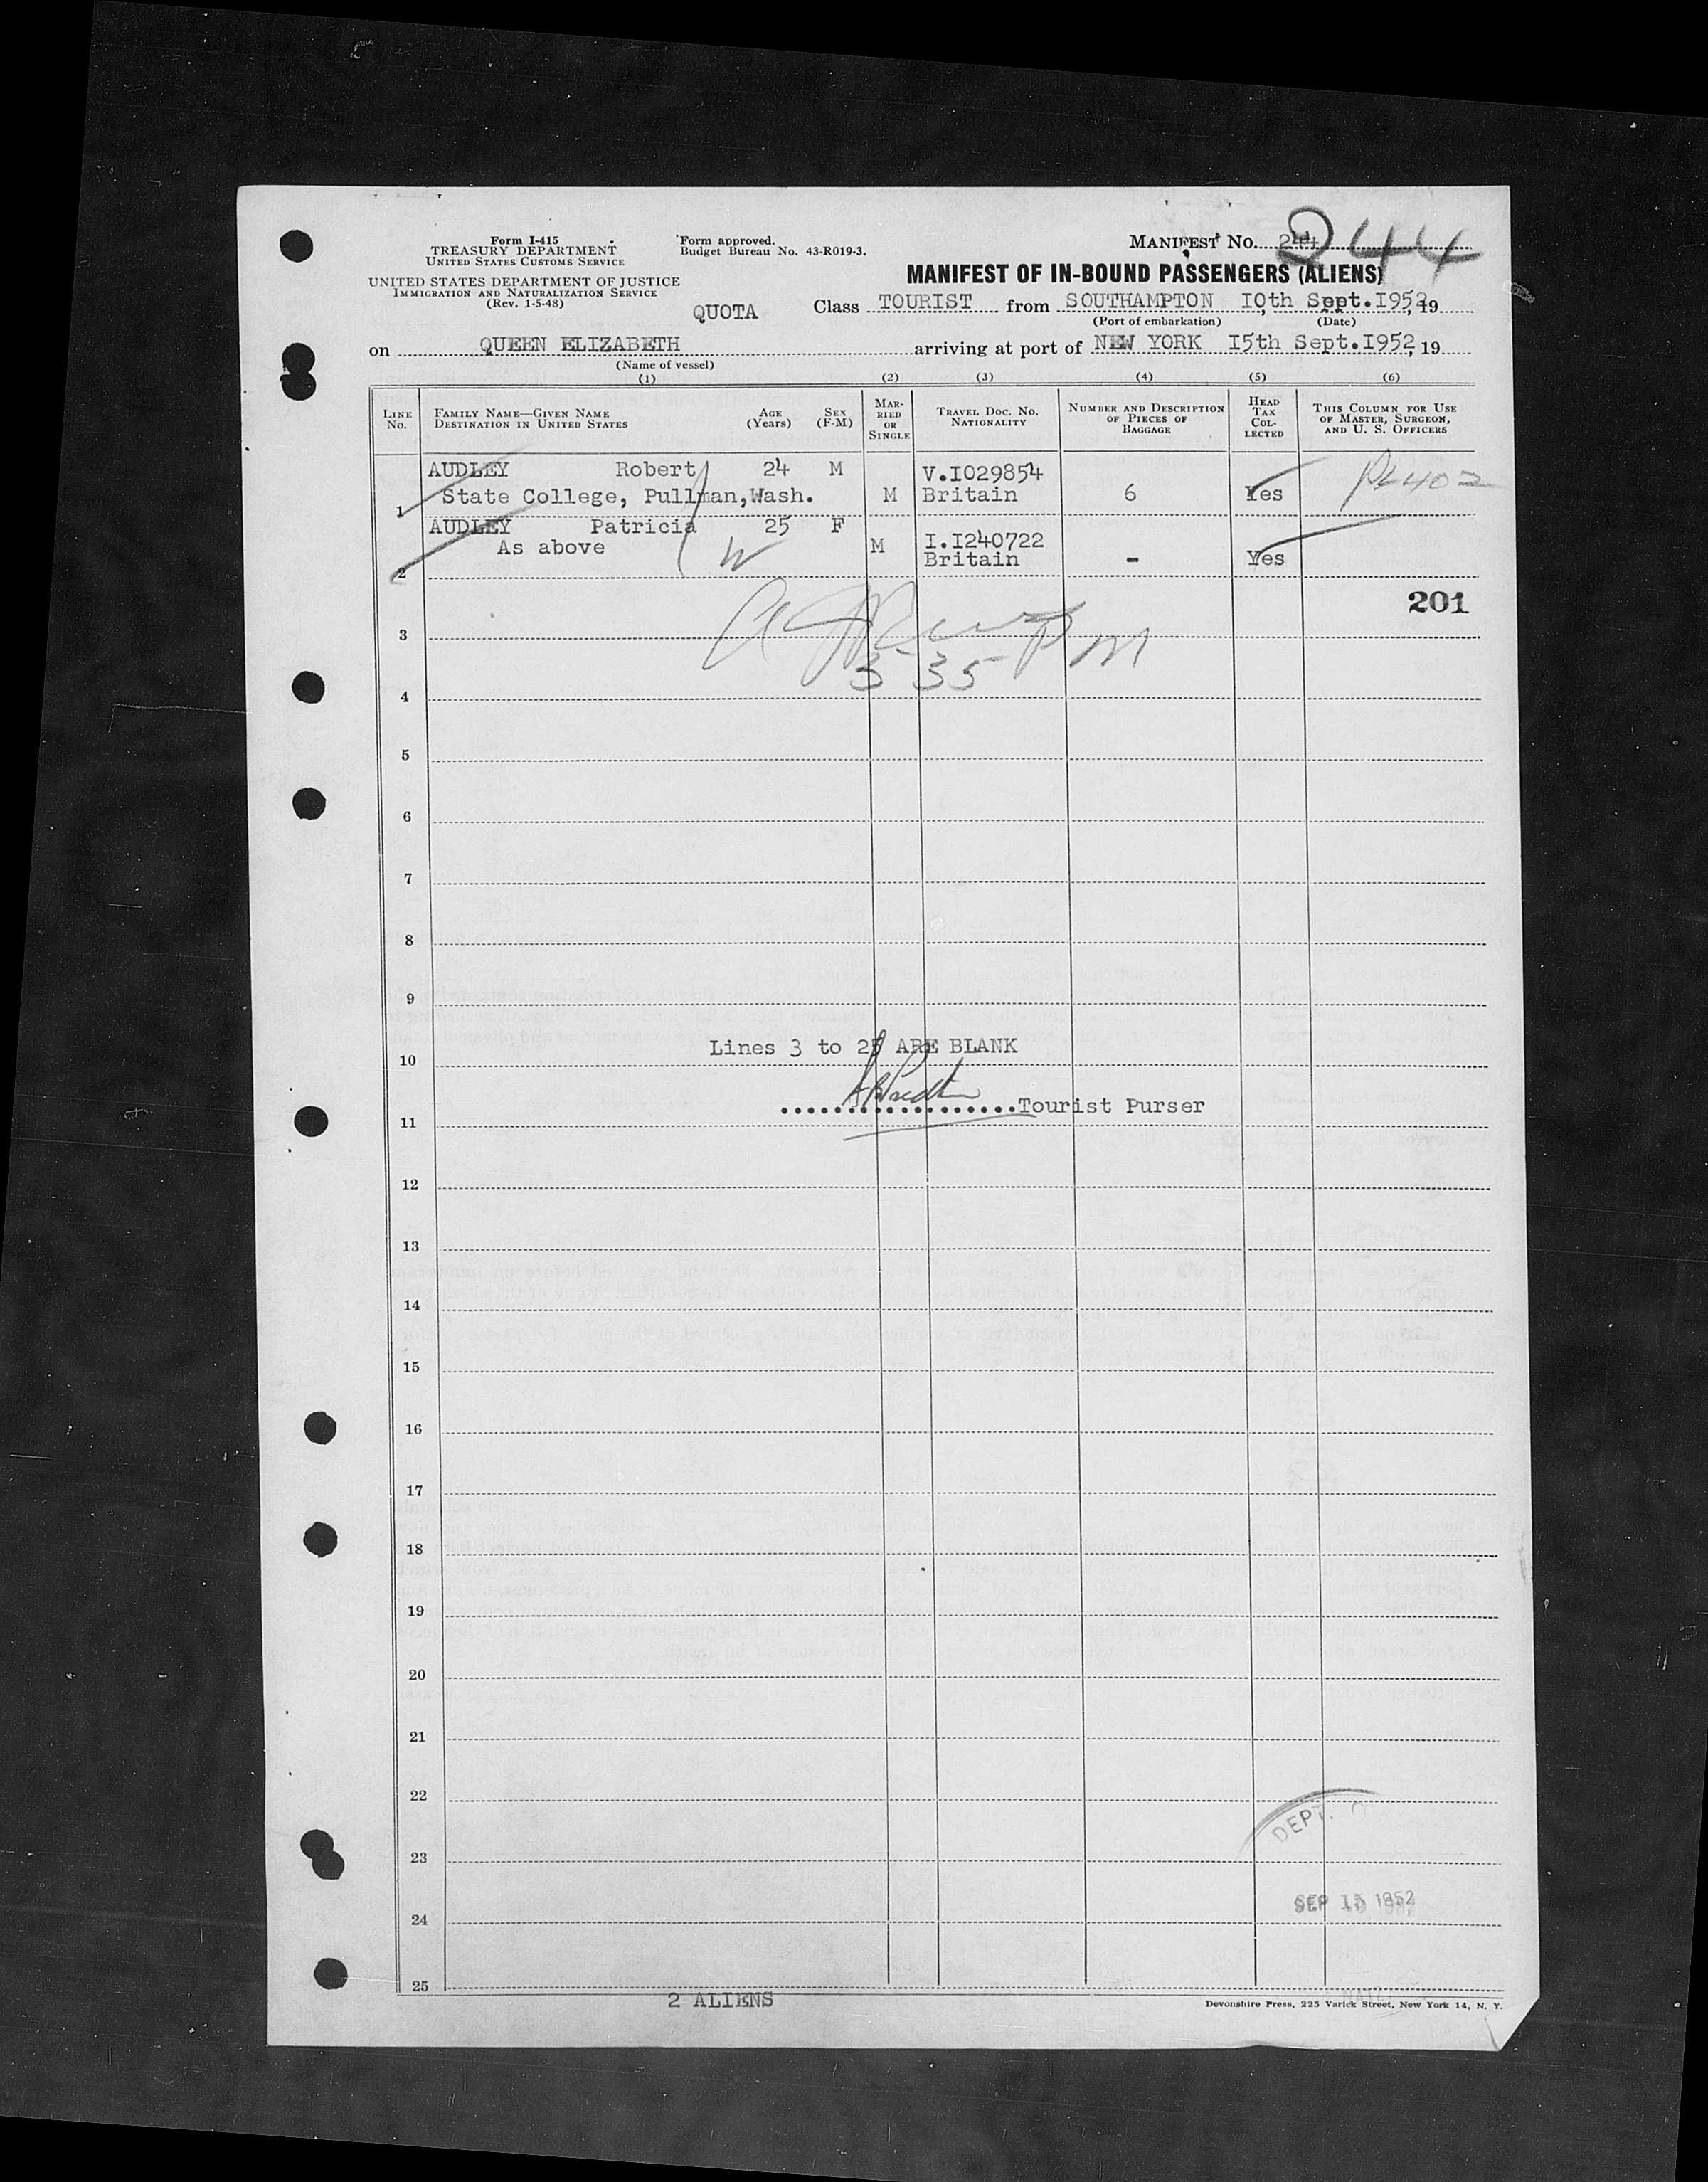 Form I-415
TREASURY DEPARTMENT
UNITED STATES CUSTOMS SERVICE
UNITED STATES DEPARTMENT OF JUSTICE
IMMIGRATION AND NATURALIZATION SERVICE
(Rev. 1-5-48)
Form approved.
Budget Bureau No. 43-R019-3.
MANIFEST No. 244
244
MANIFEST OF IN-BOUND PASSENGERS (ALIENS)
QUOTA Class TOURIST from SOUTHAMPTON I0th Sept.I952, 19
(Port of embarkation) (Date)
on QUEEN ELIZABETH arriving at port of NEW YORK I5th Sept.I952, 19
(Name of vessel)
(1) (2) (3) (4) (5) (6)
LINE No. FAMILY NAME—GIVEN NAME DESTINATION IN UNITED STATES AGE (Years) SEX (F-M) MARRIED OR SINGLE TRAVEL DOC. NO. NATIONALITY NUMBER AND DESCRIPTION OF PIECES OF BAGGAGE HEAD TAX COLLECTED THIS COLUMN FOR USE OF MASTER, SURGEON, AND U. S. OFFICERS
AUDLEY Robert 24 M V.I029854
1 State College, Pullman,Wash. M Britain 6 Yes
AUDLEY Patricia 25 F I.I240722
2 As above W M Britain - Yes
201
3
3 35
4
5
6
7
8
9
Lines 3 to 25 ARE BLANK
10
..................Tourist Purser
11
12
13
14
15
16
17
18
19
20
21
22
DEPT.
23
SEP 15 1952
24
25
2 ALIENS
Devonshire Press, 225 Varick Street, New York 14, N. Y.